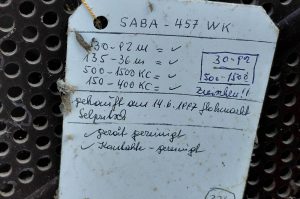 SABA - 457 WK
30-92 m = ✓
135-36 m = ✓
500-1500 KC = ✓
150-400 KC = ✓
30-92
500-1500
gekauft am 14.6.1997 flohmarkt
✓ gerät gereinigt
✓ Kontakte - gereinigt